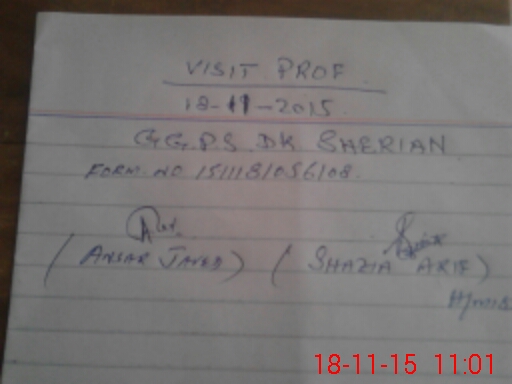 VISIT PROF
18-11-2015
G.G.P.S DK SHERIAN
FORM NO 151118/056108.
(ANSAR JAVED) (SHAZIA ARIF)
18-11-15 11:01